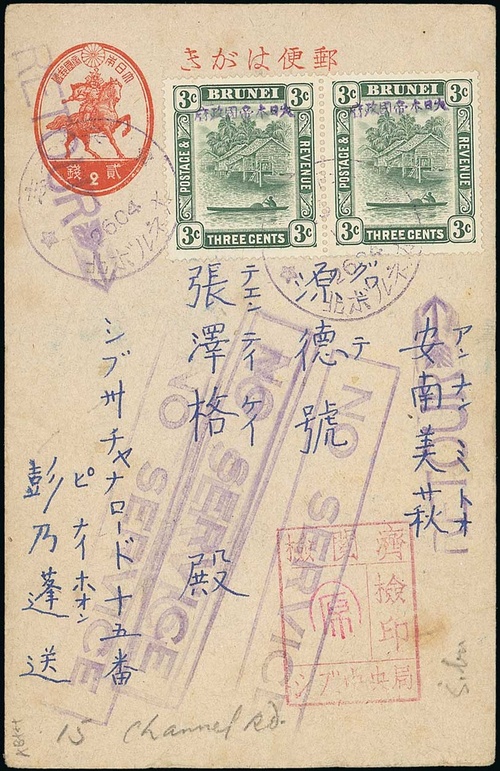 郵便はがき
大日本帝國郵便
貳錢
2
BRUNEI
3c 3c
大日本帝國政府
POSTAGE & REVENUE
3c THREE CENTS 3c
BRUNEI
3c 3c
大日本帝國政府
POSTAGE & REVENUE
3c THREE CENTS 3c
2604
北ボルネオ
2604
北ボルネオ
アンナン ミトオ
安南美萩
源德號
テエン テイ ケイ
張澤格 殿
シブ州チャナロード十五番
ピ ナイ ホオン
彭乃蓬送
NO SERVICE
NO SERVICE
NO SERVICE
檢閱濟
檢印
シブ中央局
Sibu
15 Channel Rd.